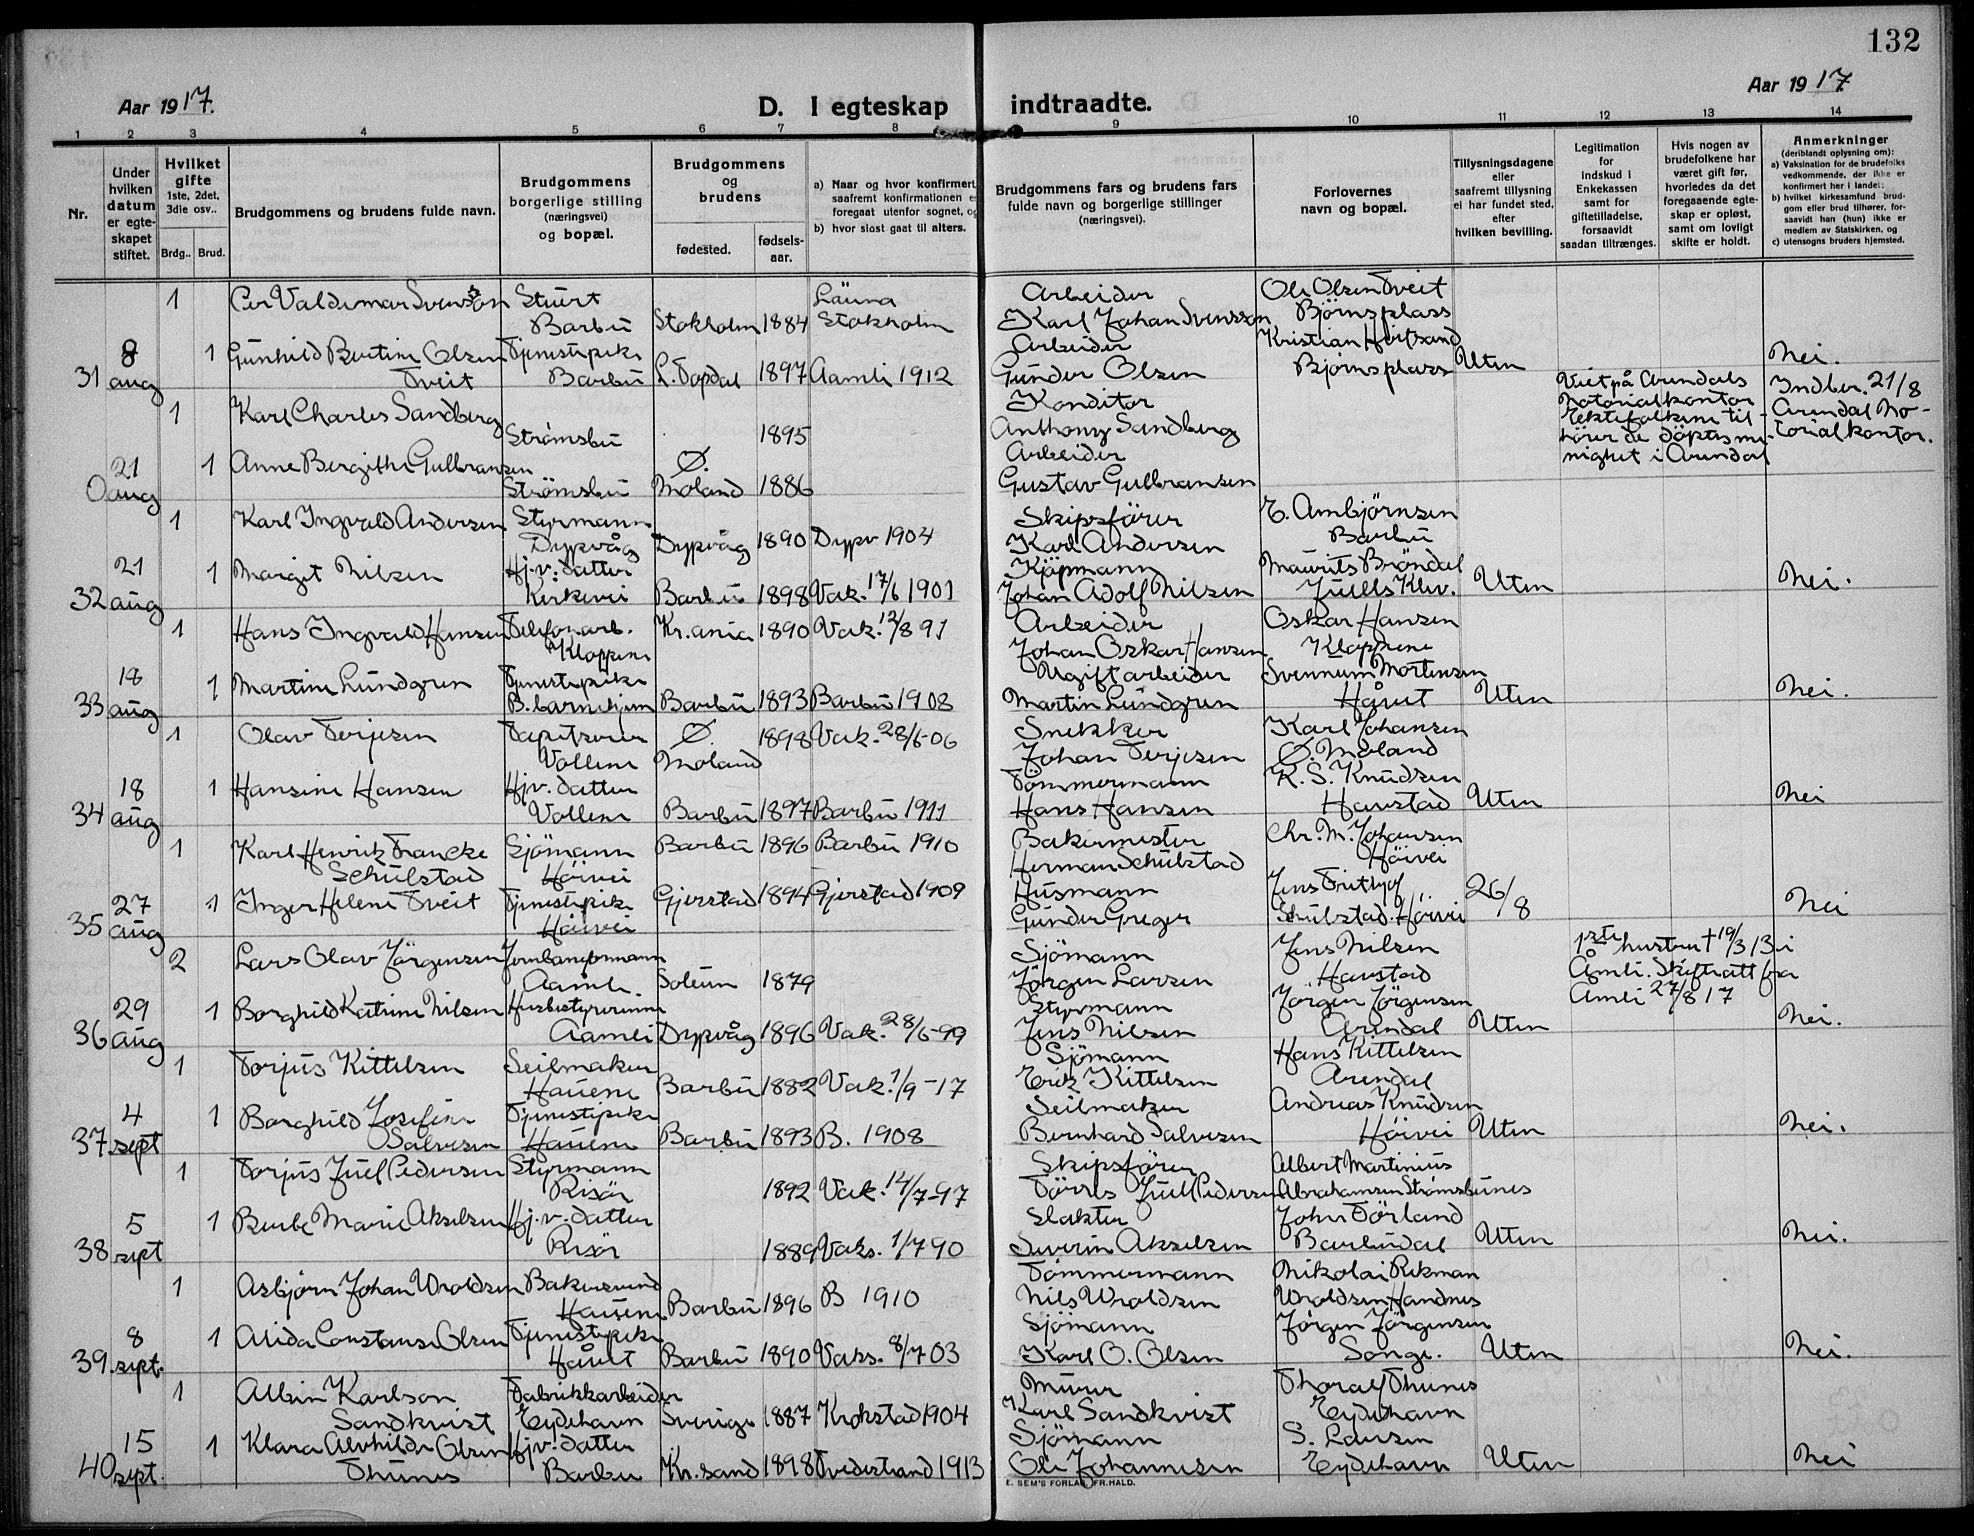 132
Aar 1917.
D. I egteskap indtraadte.
Aar 1917
1 2 3 4 5 6 7 8 9 10 11 12 13 14
Nr.
Under hvilken datum er egteskapet stiftet.
Hvilket gifte 1ste, 2det, 3die osv..
Brdg.. Brud.
Brudgommens og brudens fulde navn.
Brudgommens borgerlige stilling (næringsvei) og bopæl.
Brudgommens og brudens
fødested.
fødselsaar.
a) Naar og hvor konfirmert, saafremt konfirmationen er foregaat utenfor sognet, og
b) hvor sidst gaat til alters.
Brudgommens fars og brudens fars fulde navn og borgerlige stillinger (næringsvei).
Forlovernes navn og bopæl.
Tillysningsdagene eller saafremt tillysning ei har fundet sted, efter hvilken bevilling.
Legitimation for indskud i Enkekassen samt for giftetilladelse, forsaavidt saadan tiltrænges.
Hvis nogen av brudefolkene har været gift før, hvorledes da det foregaaende egteskap er opløst, samt om lovligt skifte er holdt.
Anmerkninger (deriblandt oplysning om):
a) Vaksination for de brudefolks vedkommende, der ikke er konfirmert her i landet;
b) hvilket kirkesamfund brudgom eller brud tilhører, forsaavidt han (hun) ikke er medlem av Statskirken, og
c) utensogns bruders hjemsted.
1 Per Valdemar Svensson Stuert Läuna Arbeider Ole Olsen Tveit
Barbu Stokholm 1884 Stokholm Karl Johan Svensson Bjørnsplass
8 1 Gunhild Bertine Olsen Tjenestepike Arbeider Kristian
31 aug Tveit Barbu L. Topdal 1897 Aamli 1912 Gunder Olsen Bjørnsplass Uten Nei.
1 Karl Charles Sandberg Konditor Viet på Arendals Indber. 21/8
Strømsbu 1895 Anthony Sandberg Notorialkontor Arendal No-
21 1 Anne Bergithe Gulbransen Ø. Arbeider Ektefolkene til- torialkontor.
0 aug Strømsbu Moland 1886 Gustav Gulbransen hører de döptes me-
nighet i Arendal
1 Karl Ingvald Andersen Styrmann Skipsfører E. Ambjörnsen
Dypvåg Dypvåg 1890 Dypv 1904 Karl Andersen Barbu
21 1 Margit Nilsen Hj.v. datter Kjöpmann Maurits Bröndal
32 aug Kirkevei Barbu 1898 Vak. 17/6 1901 Johan Adolf Nilsen Juells Klev. Uten Nei.
1 Hans Ingvald Hansen Telefonarb. Kr.ania 1890 Vak. 12/8 91 Arbeider Oskar Hansen
Kloppene Johan Oskar Hansen Kloppene
18 1 Martine Lundgren Tjenestepike Ugift arbeider Svennum Mortensen
33 aug B. barnehjem Barbu 1893 Barbu 1908 Martin Lundgren Håvet Uten Nei.
1 Olav Terjesen Tapetserer Ø. 1898 Vak. 28/6-06 Snekker Karl Johansen
Vollene Moland Johan Terjesen Ø. Moland
18 1 Hansine Hansen Hjv. datter Tömmermann K. S. Knudsen
34 aug Vollene Barbu 1897 Barbu 1911 Hans Hansen Havstad Uten Nei
1 Karl Henrik Francke Sjömann Barbu 1896 Barbu 1910 Bakermester Chr. M. Johansen
Schulstad Höivei Herman Schulstad Höivei
27 1 Inger Helene Tveit Tjenestepike Gjerstad 1894 Gjerstad 1909 Husmann Jens Frithjof 26/8
35 aug Höivei Gunder Greger Schulstad. Höivei Nei
2 Lars Olav Jörgensen Jernbanemann Sjömann Jens Nilsen 1ste hustru † 19/3 13 i
Aamli. Soleim 1879 Jörgen Larsen Havstad Åmli. Skifteratt fra
29 1 Borghild Katrine Nilsen Husbestyrerinne Styrmann Jörgen Jörgensen Amli 27/8 17
36 aug Aamli Dypvåg 1896 Vak. 28/6-99 Jens Nilsen Arendal Uten Nei.
1 Torjus Kittelsen Seilmaker Sjömann Hans Kittelsen
Hauene Barbu 1882 Vak. 1/9-17 Erik Kittelsen Arendal
4 1 Borghild Josefine Tjenestepike Seilmaker Andreas Knudsen
37 sept Salvesen Hauene Barbu 1893 B. 1908 Bernhard Salvesen Höivei Uten Nei.
1 Torjus Juel Pedersen Styrmann Skipsförer Albert Martinius
Risör 1892 Vak. 14/7-97 Törres Juel Pedersen Abrahamsen Strømsbunes
5 1 Berbe Marie Akselsen Hj.v. datter Slakter John Törland
38 sept Risör 1889 Vaks. 1/7 90 Severin Akselsen Barbudal Uten Nei.
1 Asbjörn Johan Vroldsen Bakersvend Tömmermann Nikolai Rekman
Hauene Barbu 1896 B 1910 Nils Vroldsen Vroldsen Handnes
8 1 Alida Constanse Olsen Tjenestepike Sjömann Jörgen Jörgensen
39 sept. Håvet Barbu 1890 Vaks. 8/7 03 Karl O. Olsen Songe. Uten Nei.
1 Albin Karlson Fabrikkarbeider Murer Thoralf Thunes
Sandkvist Eydehavn Sverige 1887 Krokstad 1904 Karl Sandkvist Eydehavn
15 1 Klara Alvhilde Olsen Hjv. datter Sjömann S. Larsen
40 sept. Thunes Barbu Kr.sand 1898 Tvedestrand 1913 Ole Johannesen Eydehavn Uten Nei
E. SEM'S FORLAG, FR.HALD.